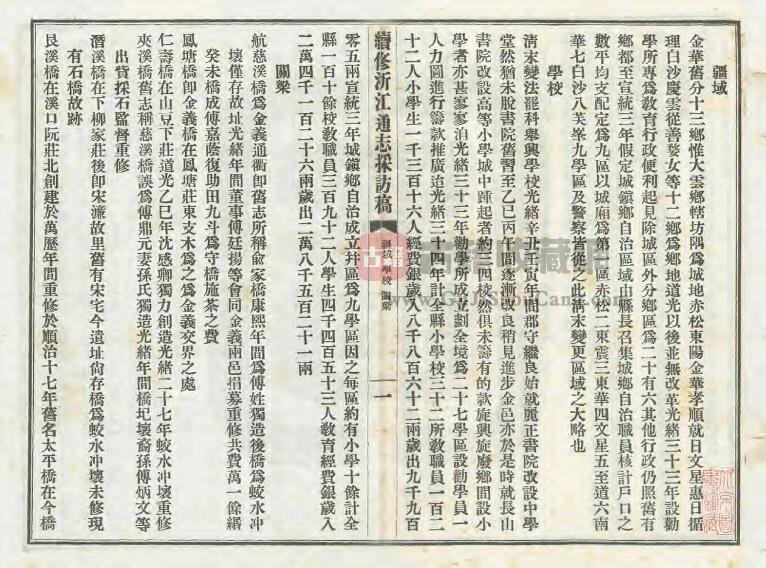 疆域
金華舊分十三鄉惟大雲鄉轄坊隅爲城地赤松東陽金華孝順就日文星惠日循
理白沙慶雲從善婺女等十二鄉爲鄉地道光以後並無改革光緒三十三年設勸
學所專爲敎育行政便利起見除城區外分鄉區爲二十有六其他行政仍照舊有
鄉都至宣統三年假定城鎮鄉自治區域由縣長召集城鄉自治職員核計戶口之
數平均支配定爲九區以城廂爲第一區赤松二東震三東華四文星五至道六南
華七白沙八芙峯九學區及警察皆從之此淸末變更區域之大略也
學校
淸末變法罷科舉興學校光緒辛丑壬寅年間郡守繼良始就麗正書院改設中學
堂然猶未脫書院舊習至乙巳丙午間逐漸改良稍見進步金邑亦於是時就長山
書院改設高等小學城中踵起者約三四校然俱未籌有的款旋興旋廢鄉間設小
學者亦甚寥寥洎光緒三十三年勸學所成立劃全境爲二十七學區設勸學員一
人力圖進行籌款推廣迨光緒三十四年計全縣小學校三十二所敎職員一百二
十二人小學生一千三百十六人經費銀歲入八千八百六十二兩歲出九千九百
續修浙江通志採訪稿
疆域 學校 關梁
一
零五兩宣統三年城鎮鄉自治成立幷區爲九學區因之每區約有小學十餘計全
縣一百十餘校敎職員三百九十二人學生四千四百五十三人敎育經費銀歲入
二萬四千一百二十六兩歲出二萬八千五百二十一兩
關梁
航慈溪橋爲金義通衢卽舊志所稱俞家橋康熙年間爲傅姓獨造後橋爲蛟水冲
壞僅存故址光緒年間董事傅廷揚等會同金義兩邑捐募重修共費萬一餘緡
癸未橋成傅嘉蔭復助田九斗爲守橋施茶之費
鳳塘橋卽金義橋在鳳塘莊東支木爲之爲金義交界之處
仁壽橋在山豆下莊道光乙巳年沈感卿獨力創造光緒二十七年蛟水冲壞重修
夾溪橋舊志稱慈溪橋誤爲傅鼎元妻孫氏獨造光緒年間橋圮壞裔孫傅炳文等
出貲採石監督重修
潛溪橋在下柳家莊後卽宋濂故里舊有宋宅今遺址尙存橋爲蛟水冲壞未修現
有石橋故跡
艮溪橋在溪口阮莊北創建於萬歷年間重修於順治十七年舊名太平橋在今橋